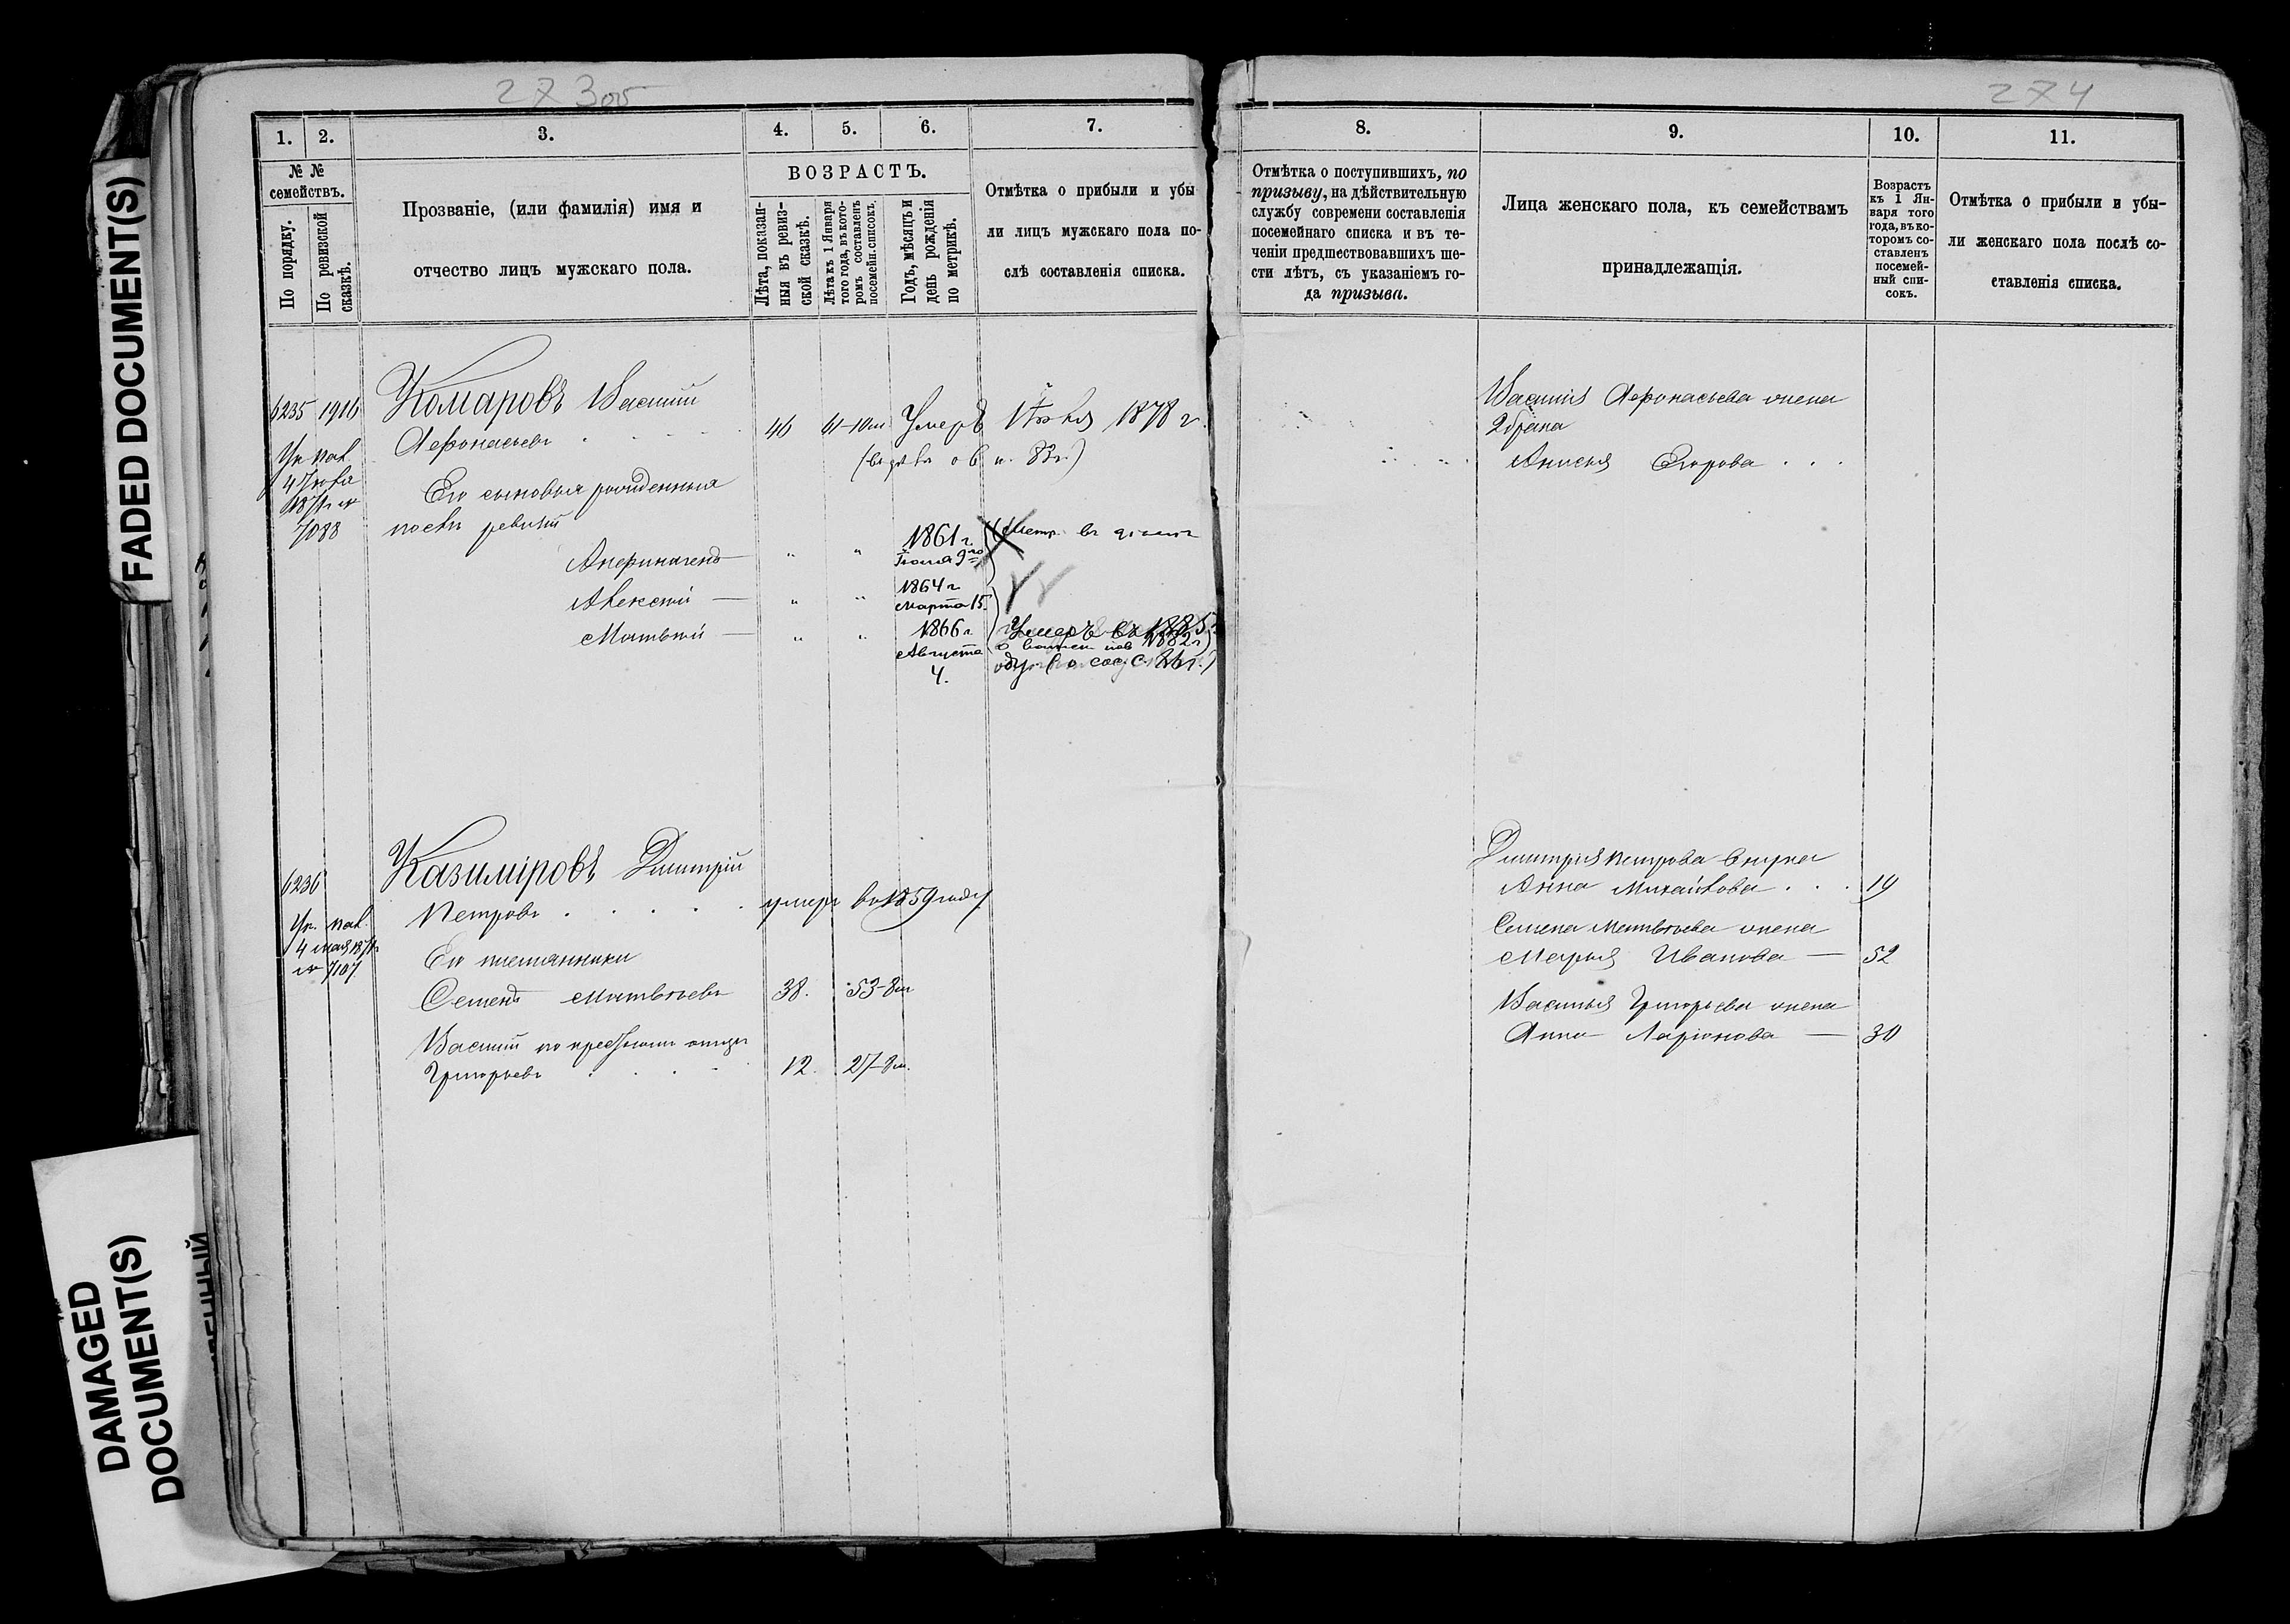 273об
274
FADED DOCUMENT(S)
DAMAGED
DOCUMENT(S)
1.
2.
3.
4.
5.
6.
7.
№ №
семействъ.
По порядку.
По ревизской
сказкѣ.
Прозваніе, (или фамилія) имя и
отчество лицъ мужскаго пола.
ВОЗРАСТЪ.
Лѣта, показан-
ныя въ ревиз-
ской сказкѣ.
Лѣта къ 1 Января
того года, въ кото-
ромъ составленъ
посемейн. списокъ.
Годъ, мѣсяцъ и
день рожденія
по метрикѣ.
Отмѣтка о прибыли и убы
ли лицъ мужскаго пола по-
слѣ составленія списка.
8.
9.
10.
11.
Отмѣтка о поступившихъ, по
призыву, на дѣйствительную
службу современи составленія
посемейнаго списка и въ те-
ченіи предшествовавшихъ ше-
сти лѣтъ, съ указаніемъ го-
да призыва.
Лица женскаго пола, къ семействамъ
принадлежащія.
Возрастъ
къ 1 Ян-
варя того
года, въ ко-
торомъ со-
ставленъ
посемей-
ный спи-
сокъ.
Отмѣтка о прибыли и убы-
ли женскаго пола послѣ со-
ставленія списка.
6235 1916
Комаровъ Василій
Афонасьевъ
46
61-10м
Умеръ 1878 г.
Ук. пал.
7088
Его сыновья рожденныя
послѣ ревизіи
Анфиногенъ
1861 г.
Іюля 9го
Алексѣй
1864 г.
Марта 15.
Матвѣй
1866 г.
Августа
4.
Умеръ въ 1885
1882 г
Василія Афонасьева жена
2 брака
Анисья Егорова
6236
Ук. пал.
4 мая
№ 7107
Казиміровъ Дмитрій
Петровъ
умеръ въ 1859 году
Его племянники
Семенъ Матвѣевъ
38.
53-8м
Василій по крестному отцу
Григорьевъ
12.
27-8м.
Дмитрія Петрова внучка
Анна Михайлова
19
Семена Матвѣева жена
Марья Иванова
52
Василья Григорьева жена
Анна Ларіонова
30